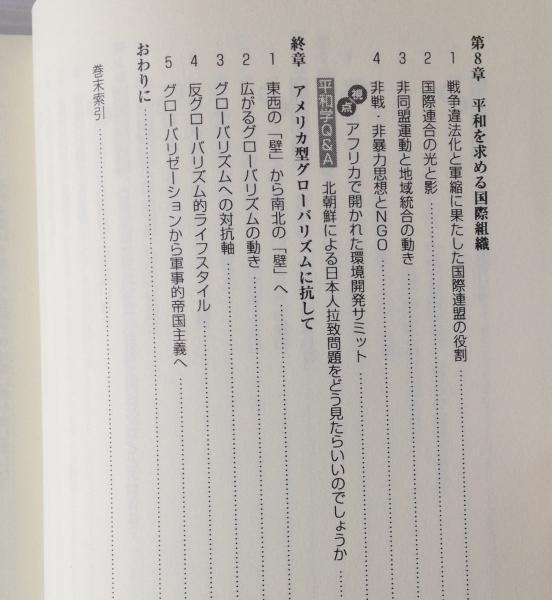 第8章　平和を求める国際組織
1　戦争違法化と軍縮に果たした国際連盟の役割
2　国際連合の光と影
3　非同盟運動と地域統合の動き
4　非戦・非暴力思想とNGO
視点　アフリカで開かれた環境開発サミット
平和学Q&A　北朝鮮による日本人拉致問題をどう見たらいいのでしょうか
終章　アメリカ型グローバリズムに抗して
1　東西の「壁」から南北の「壁」へ
2　広がるグローバリズムの動き
3　グローバリズムへの対抗軸
4　反グローバリズム的ライフスタイル
5　グローバリゼーションから軍事的帝国主義へ
おわりに
巻末索引